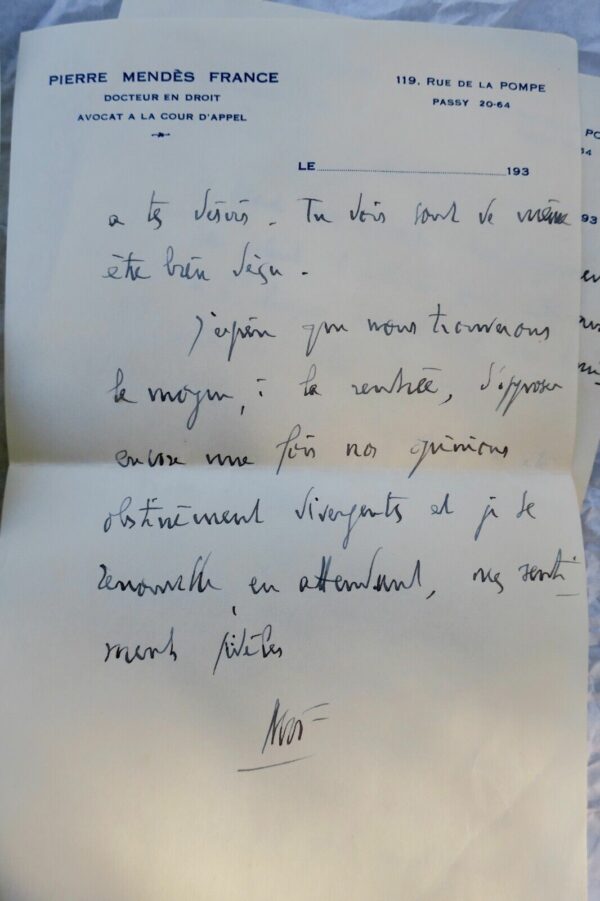 PIERRE MENDÈS FRANCE
DOCTEUR EN DROIT
AVOCAT A LA COUR D'APPEL
119, RUE DE LA POMPE
PASSY 20-64
LE 193
a tes désirs. Tu dois de même
être bien déçu.
J'espère que nous trouverons
le moyen, à la rentrée, d'opposer
encore une fois nos opinions
obstinément divergents et je te
renouvelle en attendant, mes senti
ments fidèles
PO
34
93